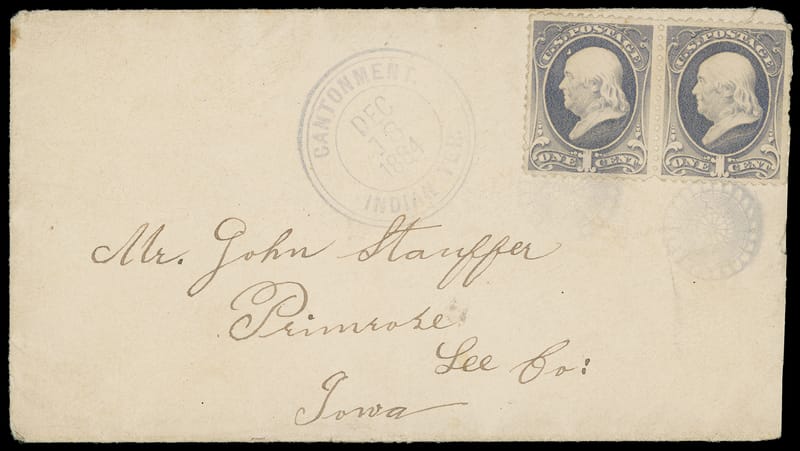 U.S. POSTAGE
ONE 1 CENT
U.S. POSTAGE
ONE 1 CENT
CANTONMENT.
DEC
13
1884
INDIAN TER.
Mr. John Stauffer
Primrose
Lee Co:
Iowa